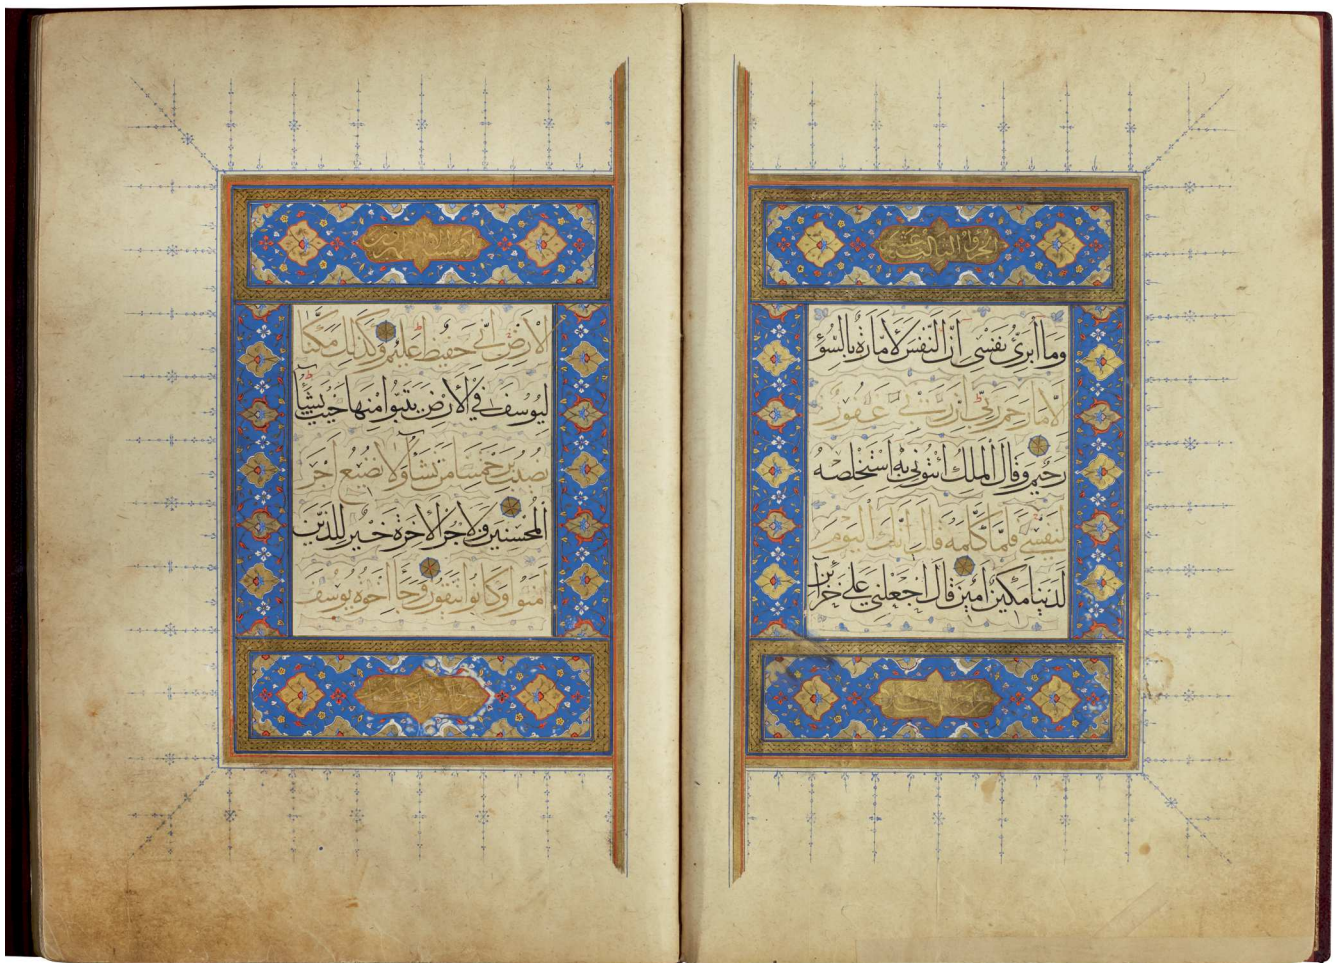 الجزو الثالث عشر
وما أبرئ نفسي إن النفس لأمارة بالسوء
إلا ما رحم ربي إن ربي غفور
رحيم وقال الملك ائتوني به أستخلصه
لنفسي فلما كلمه قال إنك اليوم
لدينا مكين أمين قال اجعلني على خزائن
الأرض إني حفيظ عليم وكذلك مكنا
ليوسف في الأرض يتبوأ منها حيث يشاء
نصيب برحمتنا من نشاء ولا نضيع أجر
المحسنين ولأجر الآخرة خير للذين
آمنوا وكانوا يتقون وجاء إخوة يوسف